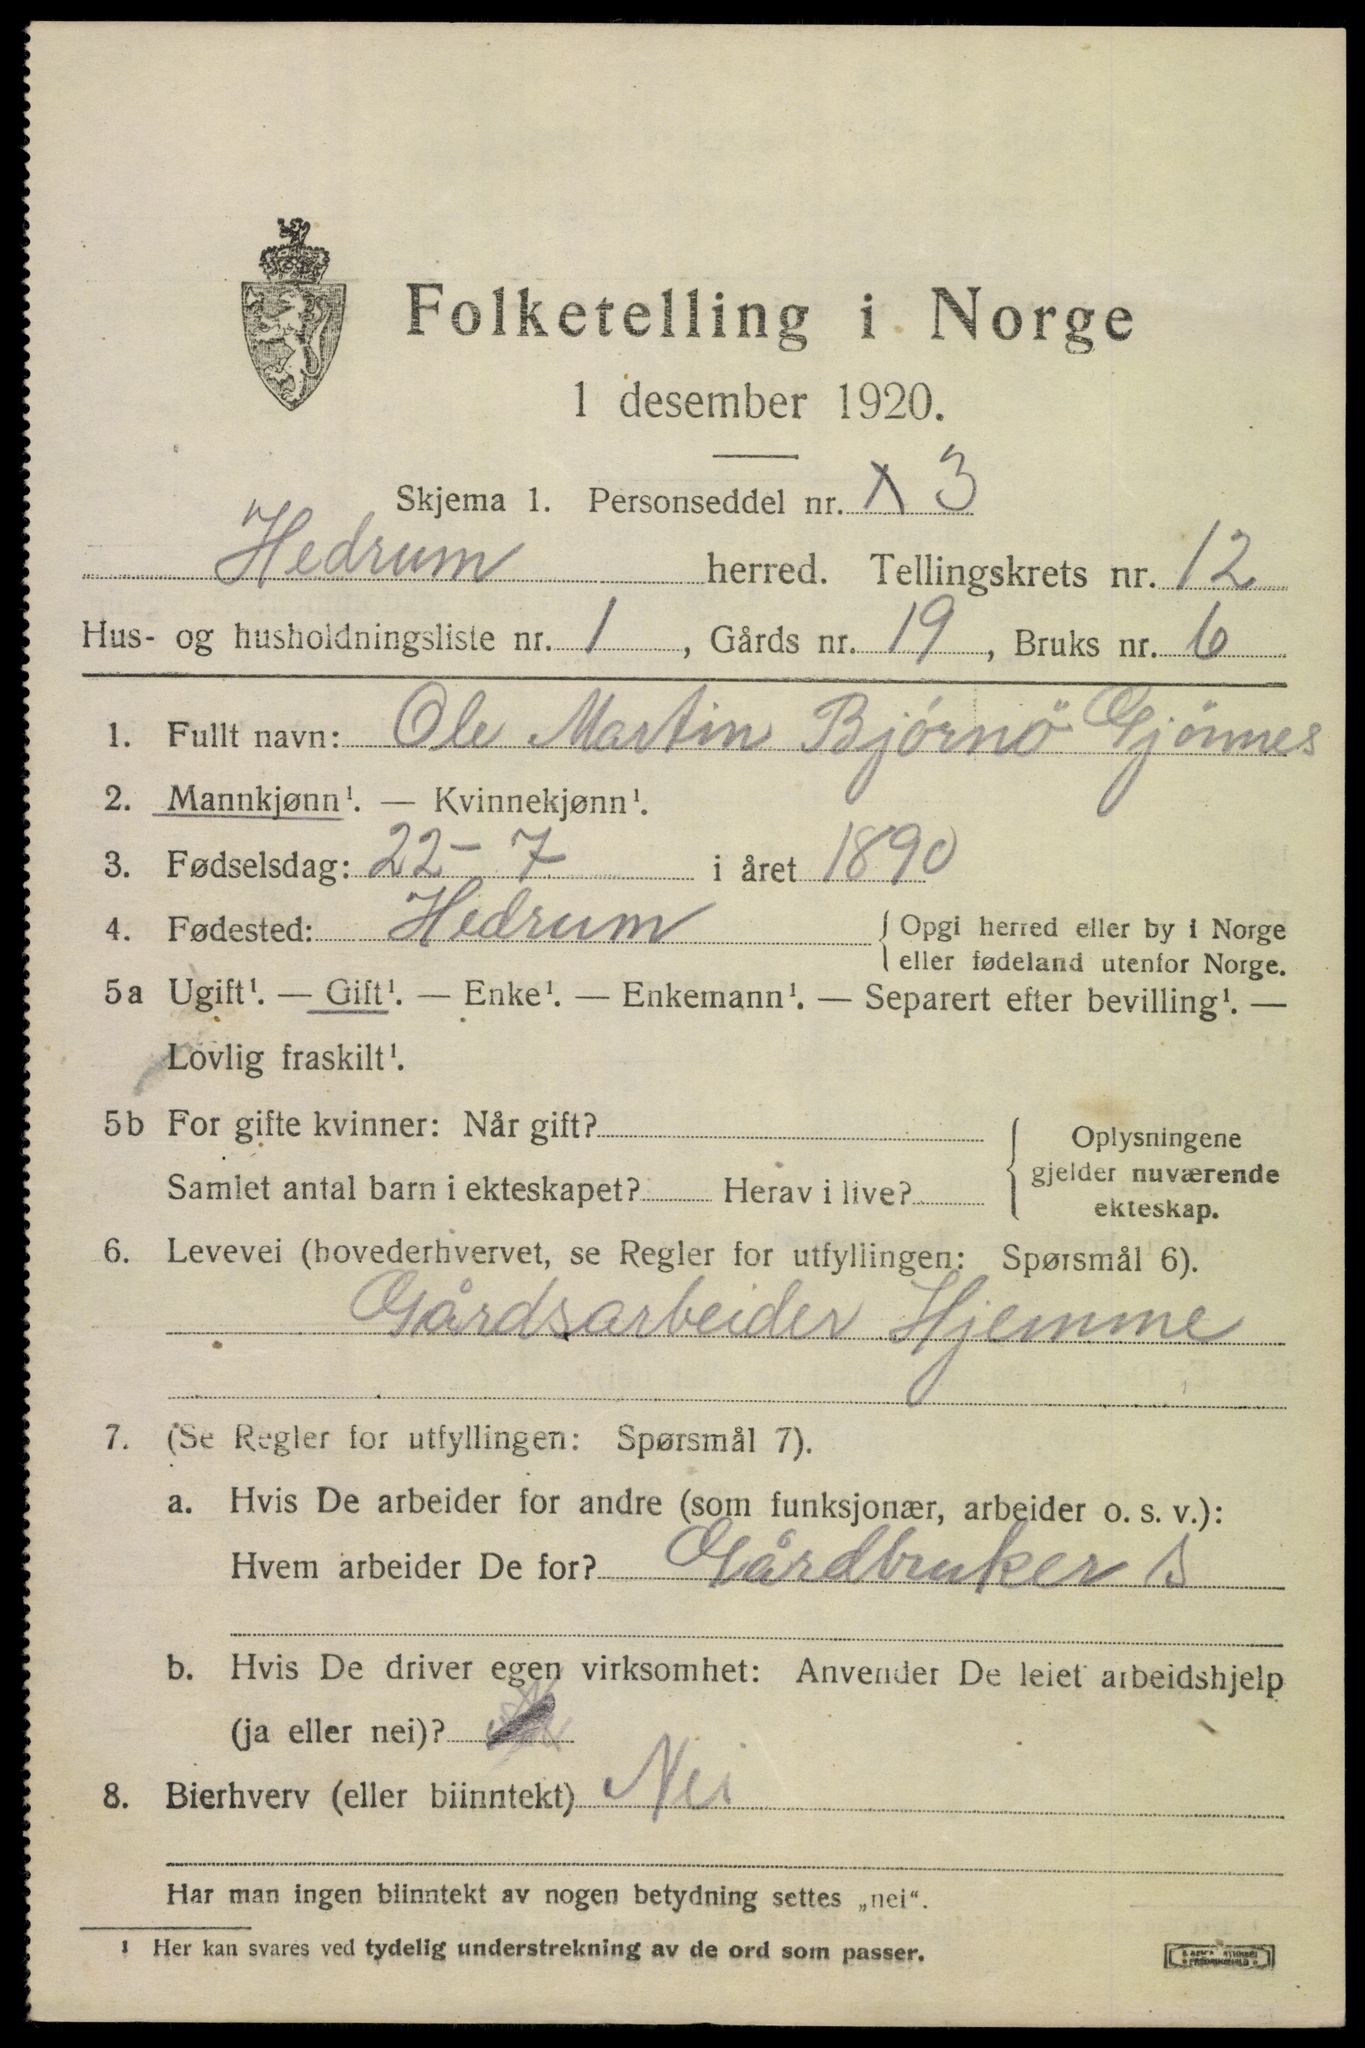 Folketelling i Norge
1 desember 1920.
Skjema 1. Personseddel nr. X 3
Hedrum herred. Tellingskrets nr. 12
Hus- og husholdningsliste nr. 1, Gårds nr. 19, Bruks nr. 6
1. Fullt navn: Ole Martin Bjórnö Gjönnes
2. Mannkjønn¹. — Kvinnekjønn¹.
3. Fødselsdag: 22-7 i året 1890
4. Fødested: Hedrum { Opgi herred eller by i Norge
eller fødeland utenfor Norge.
5a Ugift¹. — Gift¹. — Enke¹. — Enkemann¹. — Separert efter bevilling¹. —
Lovlig fraskilt¹.
5b For gifte kvinner: Når gift?
Samlet antal barn i ekteskapet? Herav i live?
{ Oplysningene
gjelder nuværende
ekteskap.
6. Levevei (hovederhvervet, se Regler for utfyllingen: Spørsmål 6).
Gårdsarbeider Hjemme
7. (Se Regler for utfyllingen: Spørsmål 7).
a. Hvis De arbeider for andre (som funksjonær, arbeider o. s. v.):
Hvem arbeider De for? Gårdbruker s
b. Hvis De driver egen virksomhet: Anvender De leiet arbeidshjelp
(ja eller nei)?
8. Bierhverv (eller biinntekt) Nei
Har man ingen biinntekt av nogen betydning settes „nei“.
¹ Her kan svares ved tydelig understrekning av de ord som passer.